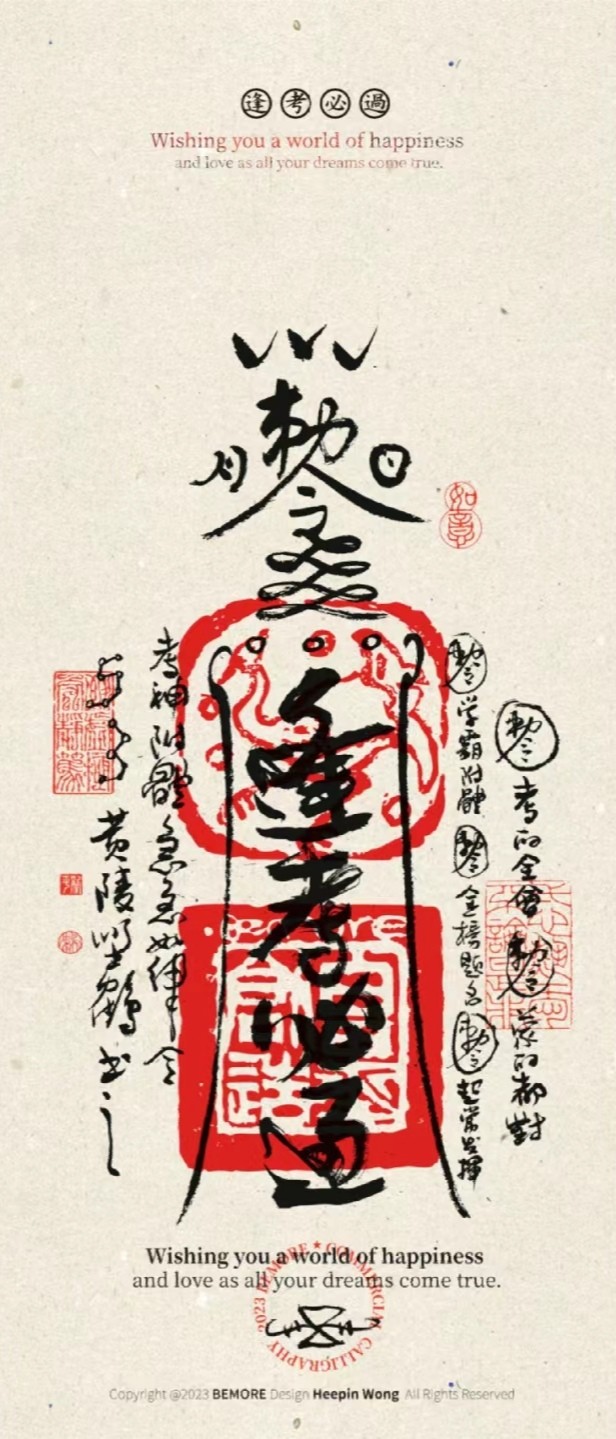 逢考必過
Wishing you a world of happiness
and love as all your dreams come true.
勅令
月 日
如意
逢考必過
勅令 考的全會 勅令 蒙的都對
勅令 学霸附體 勅令 金榜題名 勅令 超常发揮
考神附體 急急如律令
黄陵野鶴书之
Wishing you a world of happiness
and love as all your dreams come true.
2023 BEMORE ★ COMMERCIAL CALLIGRAPHY
Copyright @2023 BEMORE Design Heepin Wong All Rights Reserved